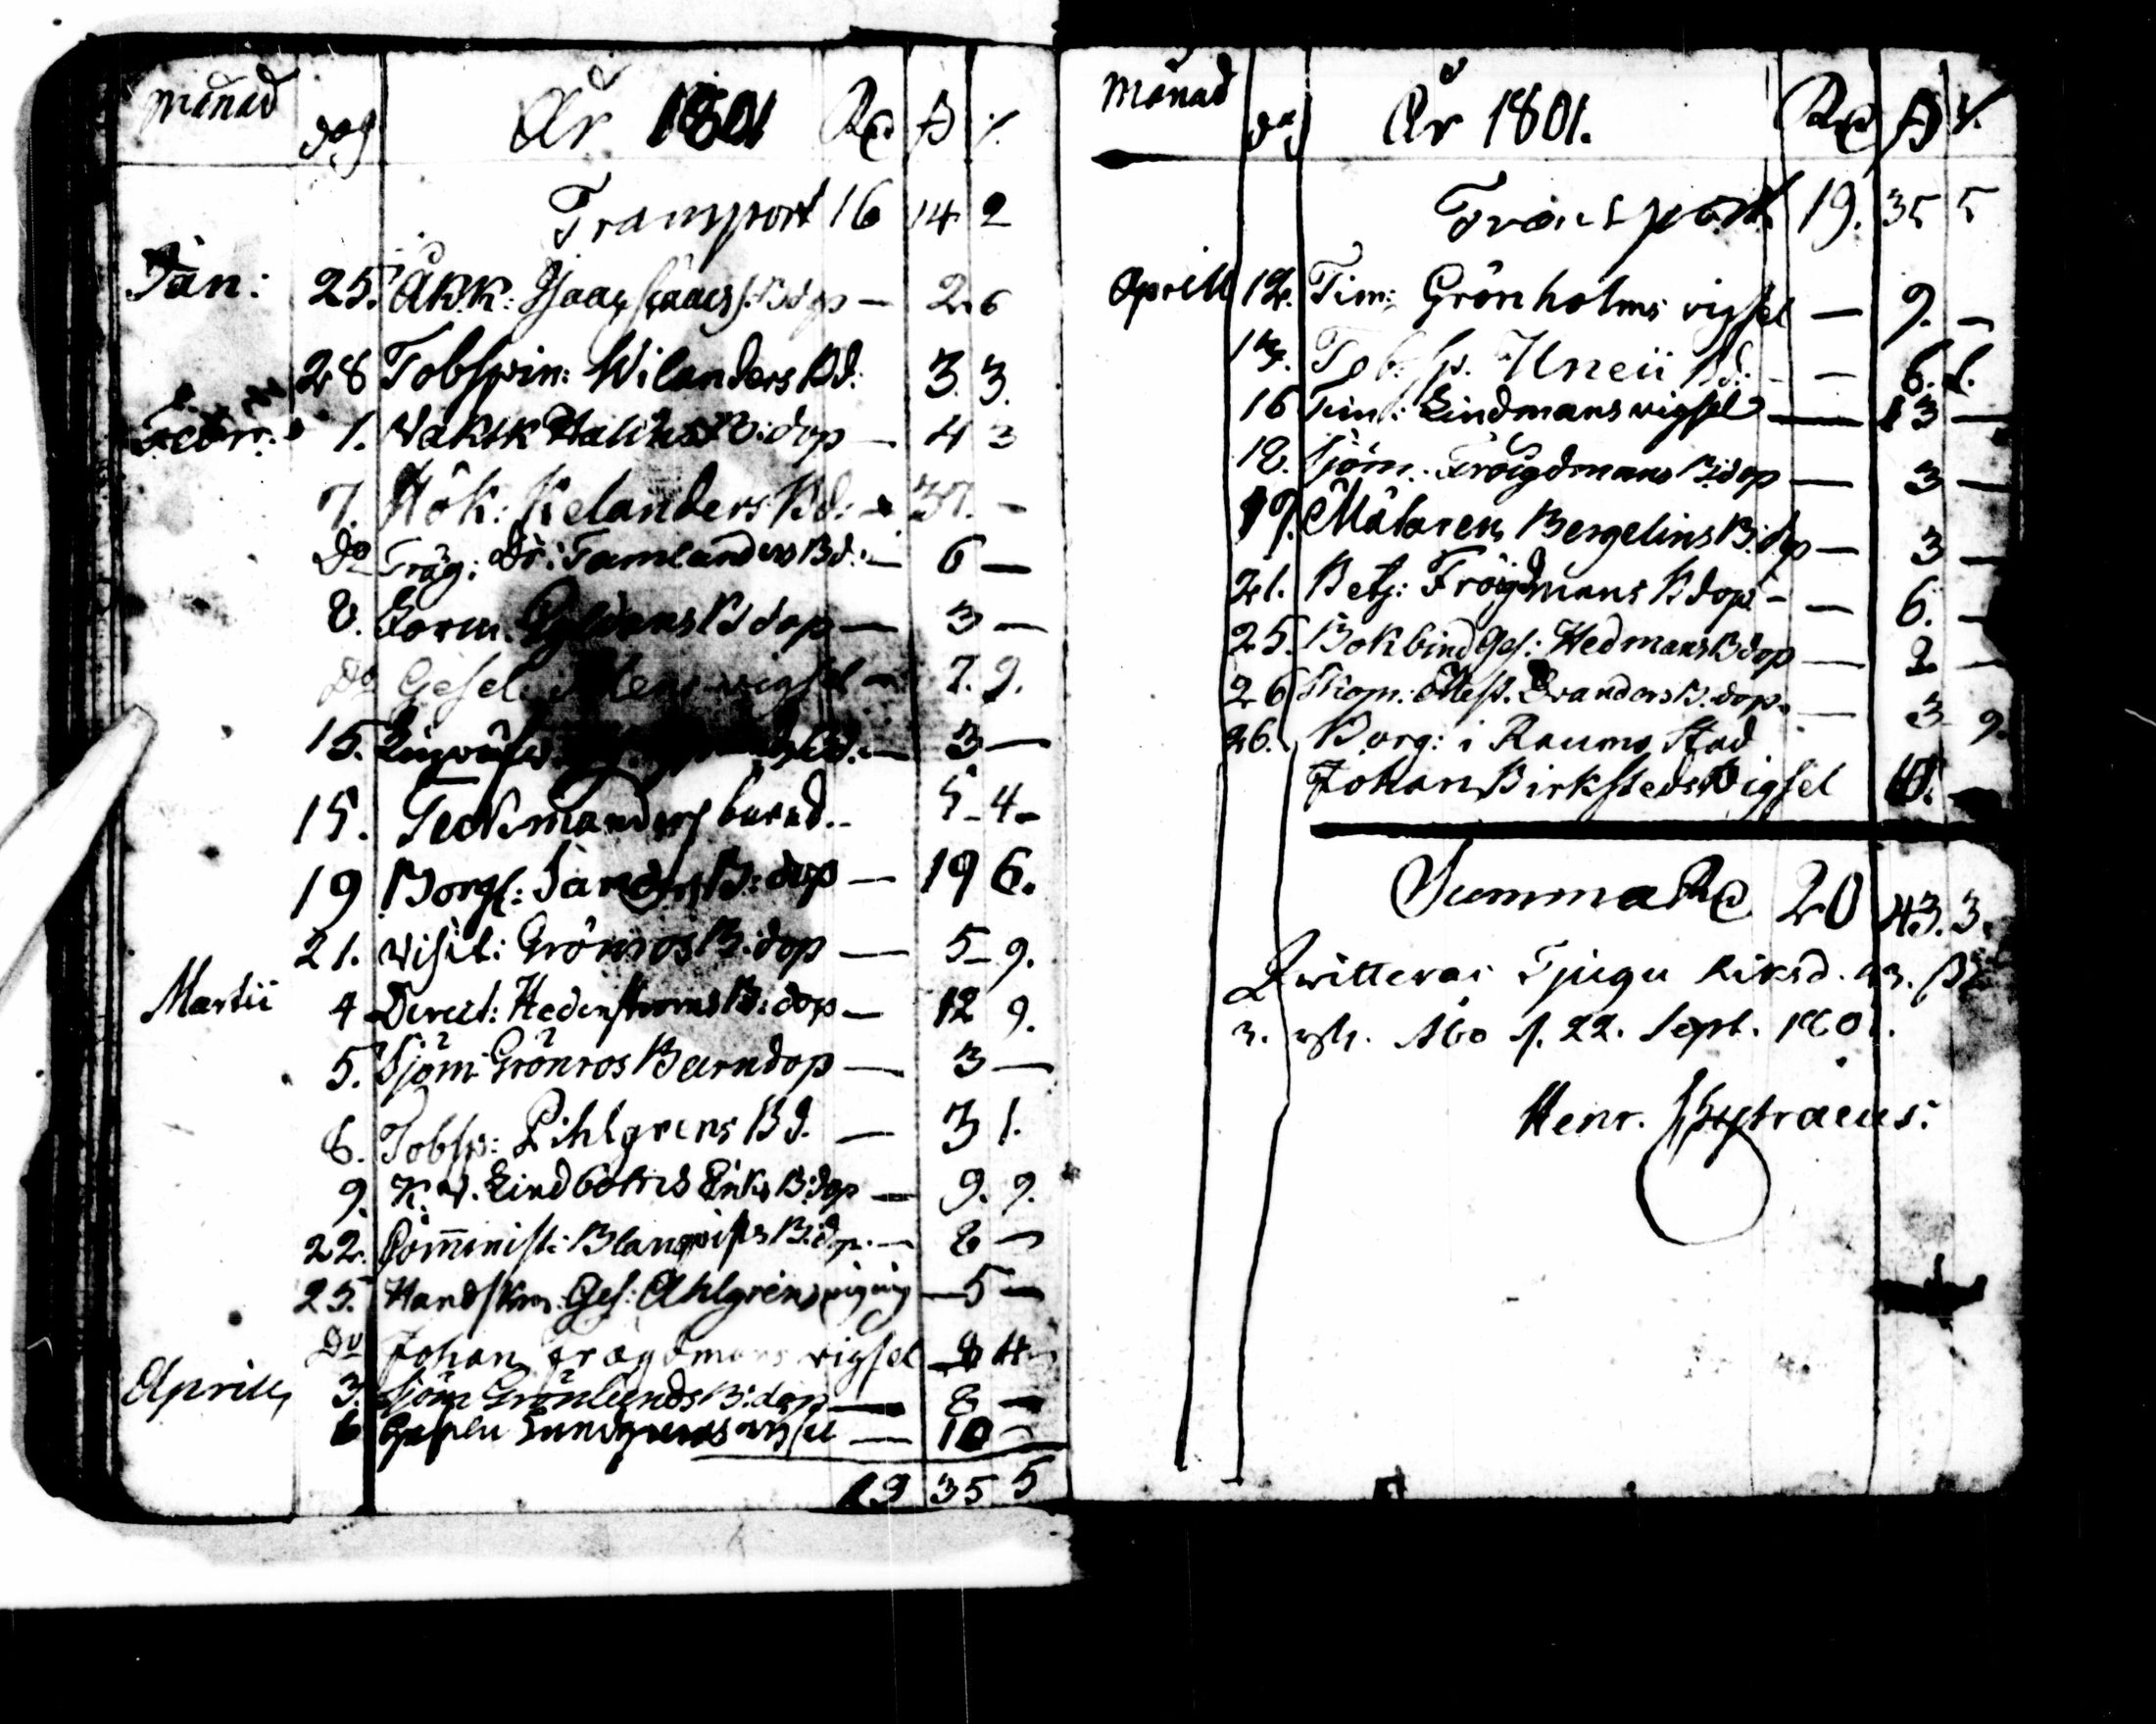 Månad dag År 1801 Rd ß r.
Transport 16 14 2
Jan: 25. Åkk: Isaac Isaacss. Bdop — 2. 6
28 Tobsspin: Wilanders Bd: 3. 3.
Febr: 1. Vaktk B:dop — 4 3
7. Hök: Kelanders Bd: — 37. -
Do Träg: Dr: Tamlanders Bd: — 6 —
8. Bdop — 3 —
Do Gesel. vigsel — 7. 9.
15. 3 —
15. Teckmanders barnd. - 5 - 4 -
19 Borgl: B:dop — 19 6.
21. Visit: Grönros B:dop — 5 - 9.
Martii 4 Direct: Hedenströms B:dop — 12 9.
5. Sjöm: Grönros Barndop — 3 —
6. Tobsp: Pihlgrens Bd. — 3 1.
9. K. Lindboms Enks B:dop — 9. 9.
22. Com̄inist: Blanqvists B:dop. — 8 —
25. Handskm. Ges: Ahlgrens — 5 —
Do Johan Frögdmans vigsel
Aprill 3. Sjöm Grönlunds B:dop — 8 —
6 Lundgrens vigsel — 10 —
19 35 5
Månad dag År 1801. Rd ß r.
Transport 19. 35 5
Aprill 12. Tim: Grönholms vigsel — 9. —
Tobsp. Uneii Bd: — 6. 1.
16 Tim: Lindmans vigsel — 13 —
18. Sjöm. Frögdmans B:dop — 3 —
19. Mätaren Bergelins B:dop — 3 —
21. Betj: Frögdmans Bdop - — 6. —
25. Bokbind Ges: Hedmans Bdop — 2 —
26 Skom: Mest. Evanders B:dop. — 3 9.
26. Borg: i Raumo Stad
Johan Birksteds Vigsel 10. —
Summa Rd 20 43. 3.
Qvitteras Tjugu Riksd. 43. ß
3. r. Åbo d. 22. Sept. 1801.
Henr.